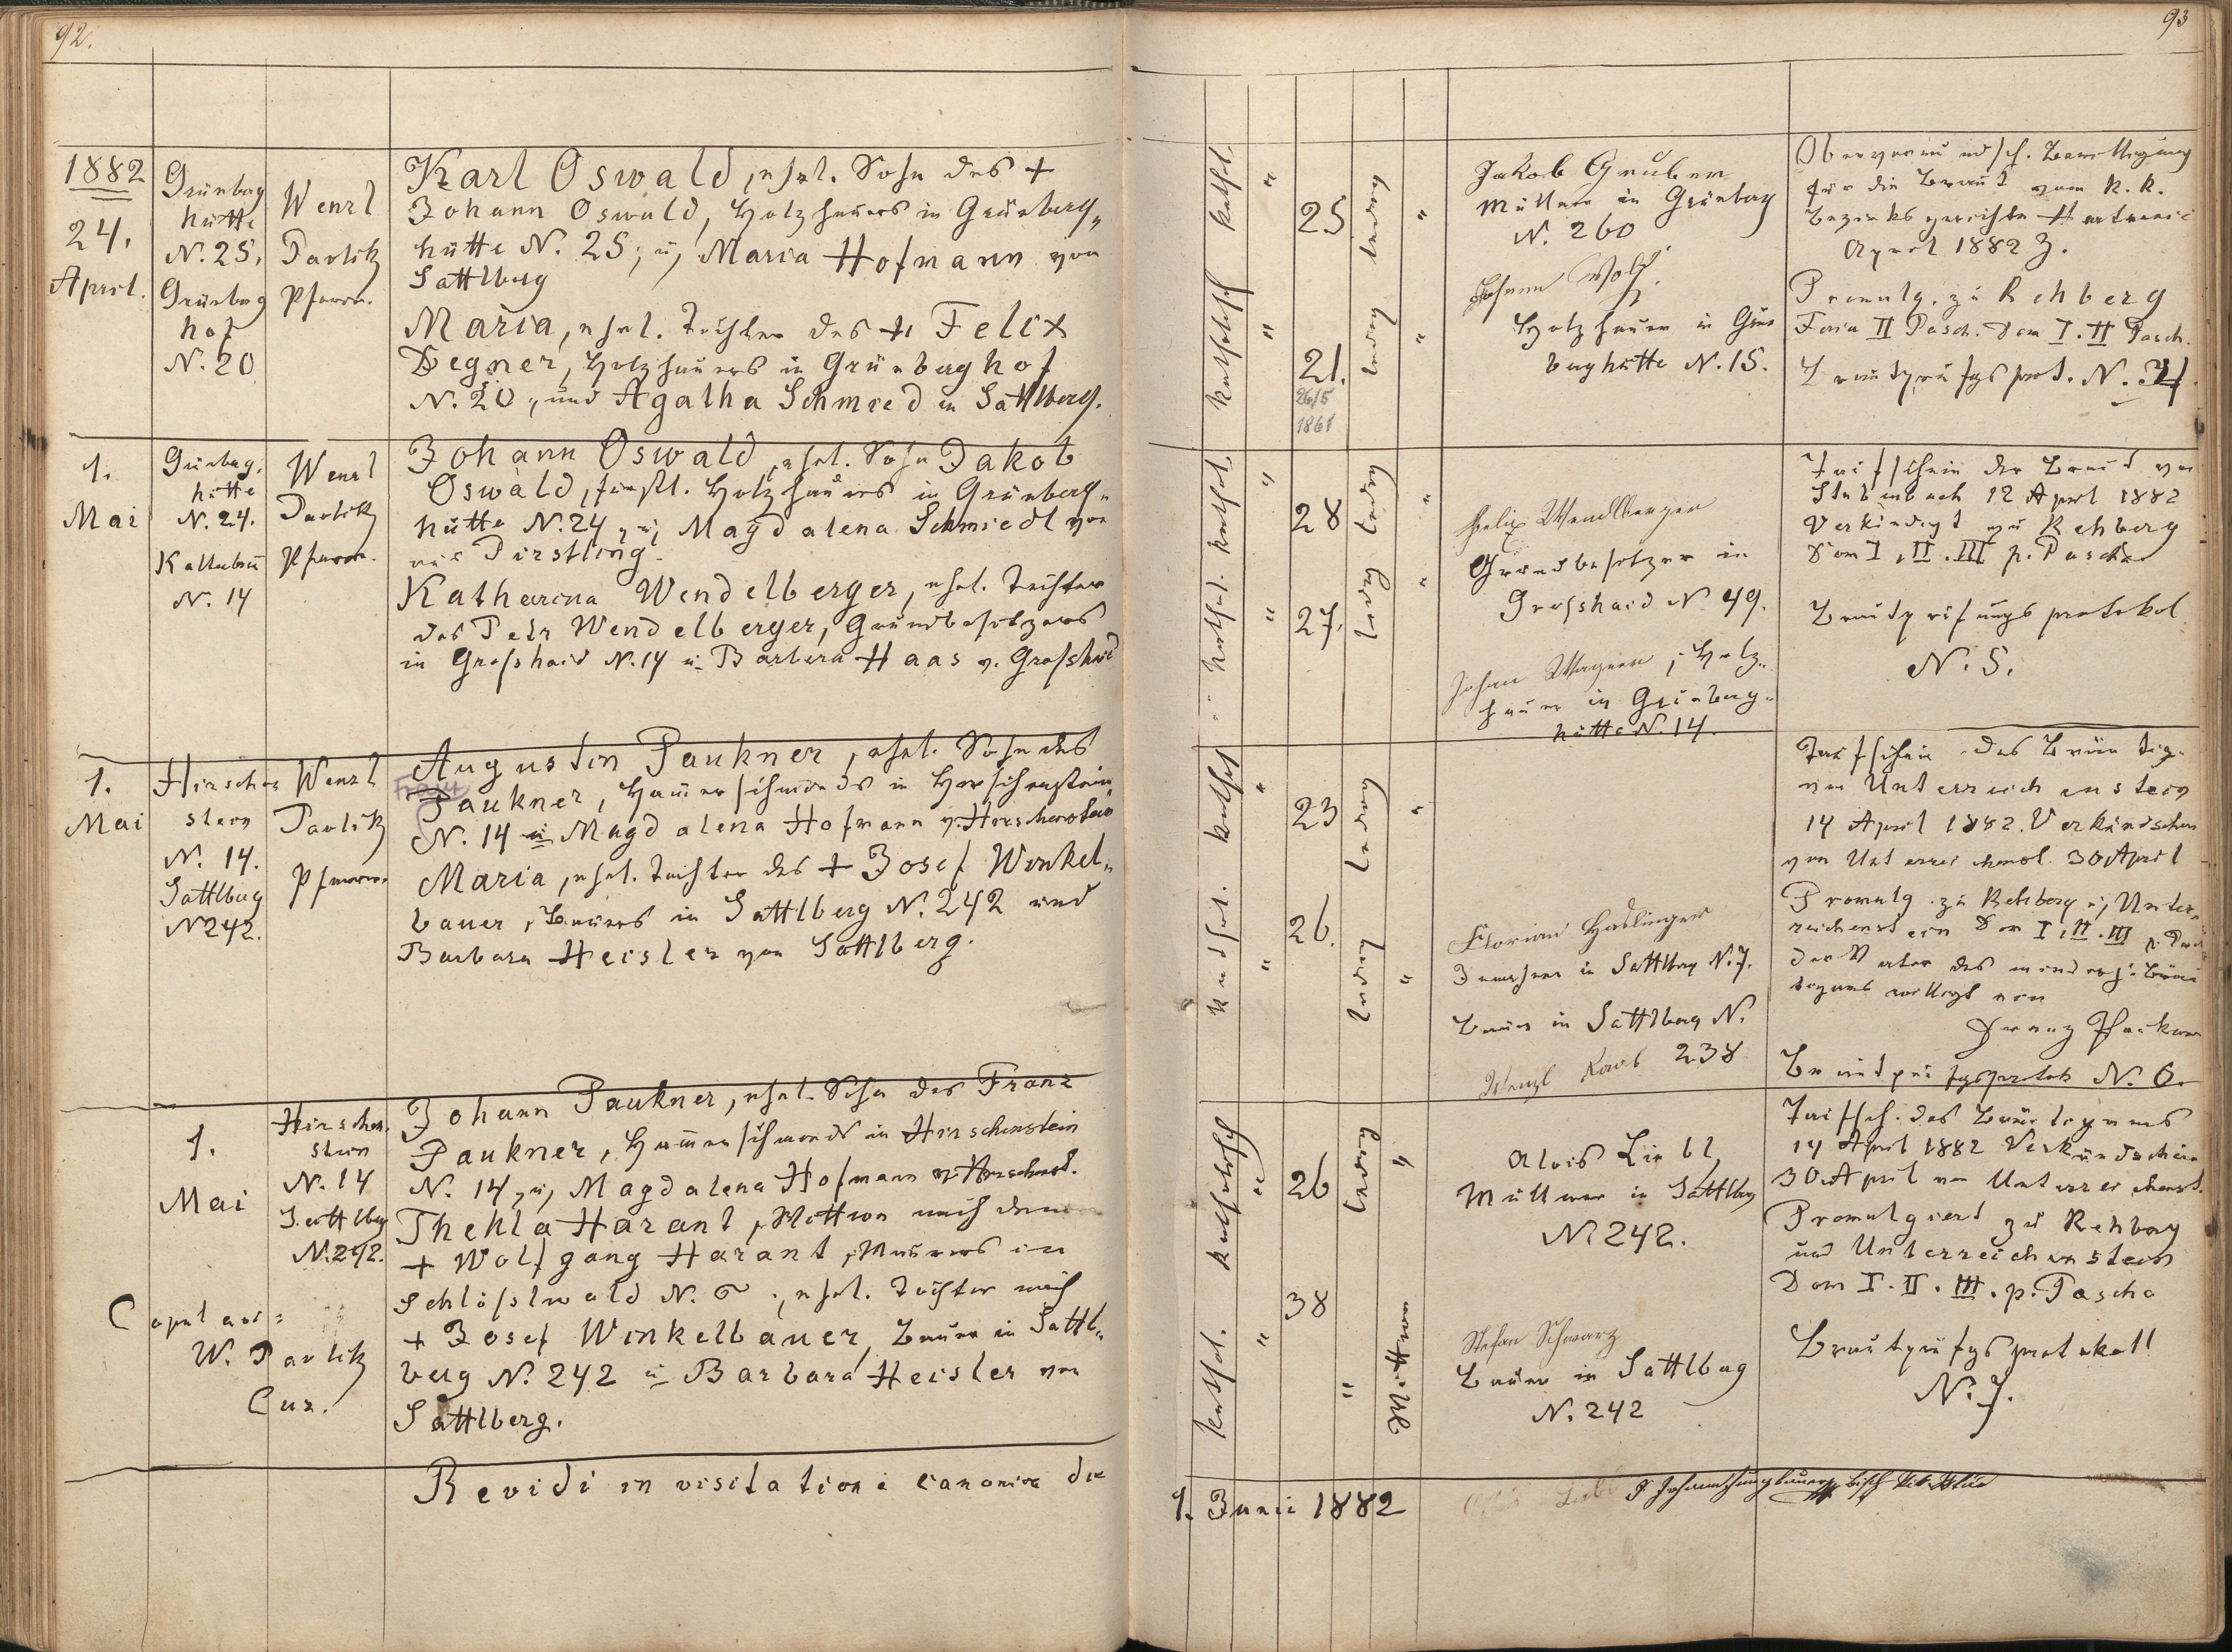 92.
1882
24.
April.
Grünberg
hütte
N. 25.
Grünberg
hof
N. 20
Wenzl
Pavlik
Pfarrer.
Karl Oswald, ehel. Sohn des +
Johann Oswald, Holzhauers in Grünberg„
hütte N. 25, u, Maria Hofmann von
Sattlberg
Maria, ehel. Tochter des + Felix
Degner, Holzhauers in Grünberghof
N. 20, und Agatha Schmied in Sattlberg.
1.
Mai
Grünberg.
hütte
N. 24.
N. 14
Wenzl
Pavlik
Pfarrer.
Johann Oswald, ehel. Sohn Jakob
Oswald, fürstl. Holzhauers in Grünberg„
hütte N. 24, u, Magdalena Schmiedl von
Pirstling.
Katharina Wendelberger, ehel. Tochter
des Petr Wendelberger, Grundbesitzers
in Großhaid N. 14 u. Barbara Haas v. Großhaid
1.
Mai
Hirschen
stein
N. 14.
Sattlberg
N 242.
Wenzl
Pavlik
Pfarrer.
Augustin Paukner, ehel. Sohn des
Franz
Paukner, Hammerschmieds in Hirschenstein
N. 14 u Magdalena Hofmann v. Hirschenstein
Maria, ehel. Tochter des + Josef Winkel„
bauer, Bauers in Sattlberg N. 242 und
Barbara Heisler von Sattlberg.
1.
Mai
Hirschen.
stein
N. 14
Sattlberg
N. 242.
Copulavi:
W. Pavlik
Cur.
Johann Paukner, ehel. Sohn des Franz
Paukner, Hammerschmieds in Hirschenstein
N. 14, u, Magdalena Hofmann v. Hirschenst.
Thekla Harant, Wittwe nach dem
+ Wolfgang Harant, Maurers in
Schlößlwald N. 6, ehel. Tochter nach
+ Josef Winkelbauer, Bauer in Sattl„
berg N. 242 u Barbara Heisler von
Sattlberg.
Revidi in visitatione canonica die
93
kathol.
"
25
ledig
"
katholisch
"
21.
26/5
1861
ledig
"
Jakob Gruber
Müller in Grünberg
N. 260
Johann Wolf.
Holzhauer in Grün
berghütte N. 15.
Obervormundsch. Bewilligung
für die Braut vom k. k.
Bezirksgerichte Hartmanic
April 1882 Z.
Promulg. zu Rehberg
Feria II Pasch. Dom I. II Pasch.
kathol.
"
28
ledig
"
kathol.
"
27.
ledig
"
Felix Wendlberger
Grundbesitzer in
Großhaid N. 49.
Johann Wagner, Holz„
hauer in Grünberg„
hütte N. 14.
Taufschein der Braut von
Stubenbach 12 April 1882
Verkündigt zu Rehberg
Dom I, II. III p. Pascha
Brautprüfungsprotokol
N. 5.
kathol
"
23
ledig
"
kathol.
"
26.
ledig
"
Florian Haslinger
Inwohner in Sattlberg N. 7.
Bauer in Sattlberg N.
Wenzl Raab 238
Taufschein des Bräutig-
von Unterreichenstein
14 April 1882. Verkündschein
von Unterreichenst. 30 April
Promulg. zu Rehberg u, Unter„
reichenstein Dom I, II. III p. Pasch
Der Vater des minderj. Bräu
tigams willigt ein
Franz Paukner
N. 6.
katholisch
"
26
ledig
"
kathol.
"
38
"
Wittwe
Alois Liebl
Müllner in Sattlberg
N. 242.
Stefan Schwarz
Bauer in Sattlberg
N. 242
Taufsch. des Bräutigams
14 April 1882 Verkündschein
30 April von Unterreichenst.
Promulgiert zu Rehberg
und Unterreichenstein
Dom I. II. III. p. Pascha
Brautprüfgsprotokoll
N. 7.
1. Junii 1882